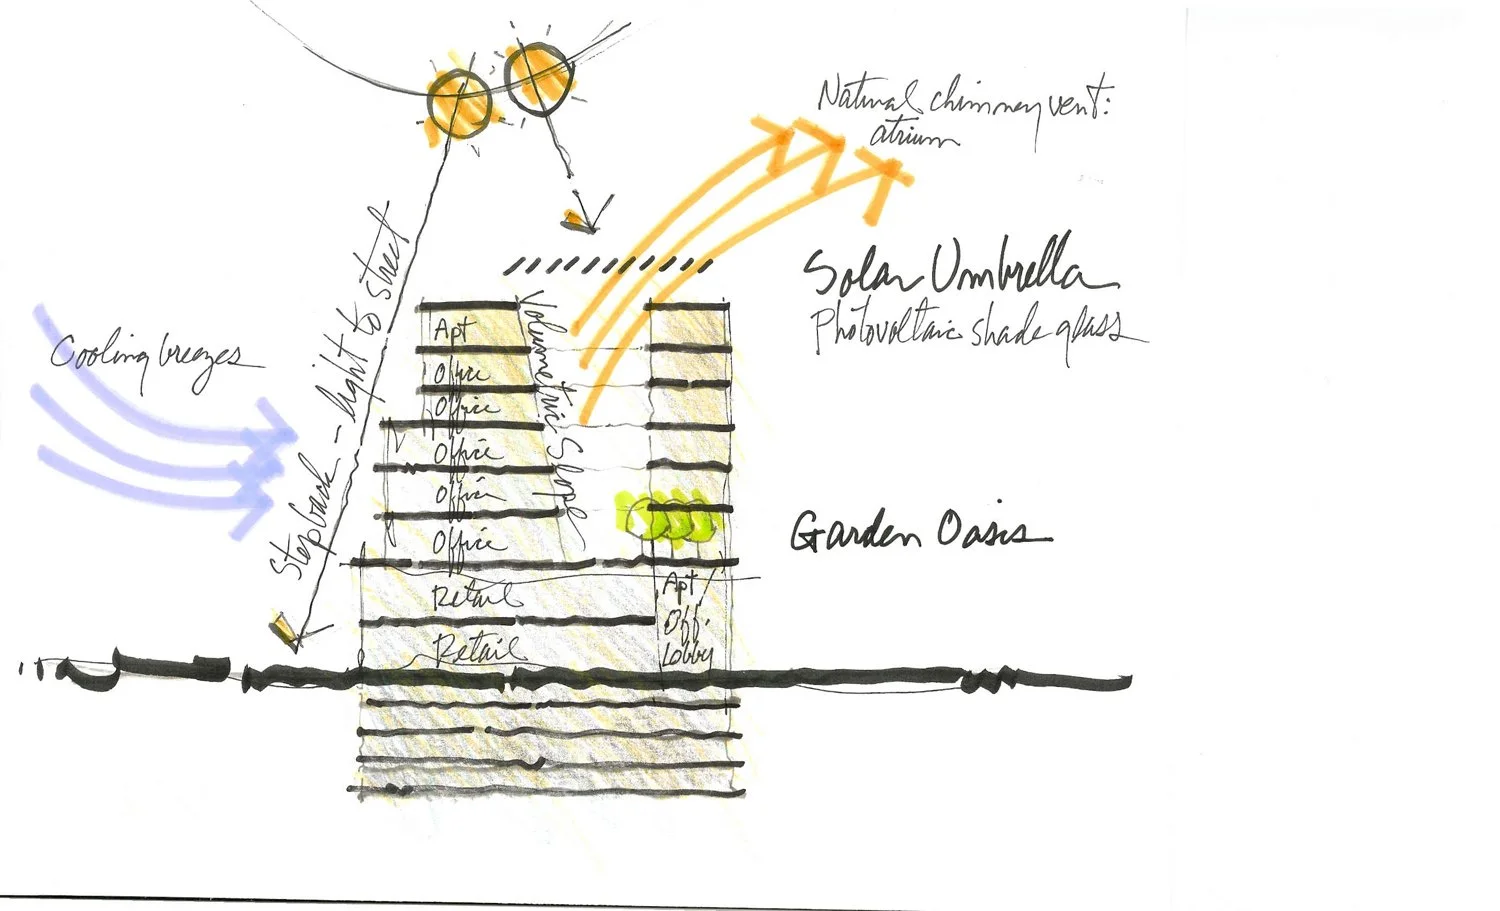 Natural chimney vent:
atrium
Solar Umbrella
Photovoltaic shade glass
Cooling breezes
Stepback - light to street
Volumetric Slope
Apt
Office
Office
Office
Office
Office
Garden Oasis
Retail
Retail
Apt /
Off.
Lobby